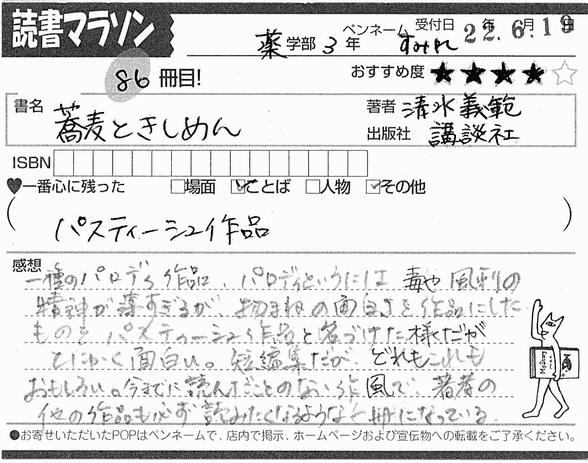 読書マラソン
薬 学部 3 年 ペンネーム すみれ 受付日 22年6月19日
86 冊目! おすすめ度 ★★★★☆
書名 蕎麦ときしめん
著者 清水義範
出版社 講談社
ISBN
♥一番心に残った □場面 ☑ことば □人物 ☑その他
(パスティーシュ作品)
感想
一種のパロディ作品、パロディというには毒や風刺の
精神が薄すぎるが、物まねの面白さを作品にした
ものをパスティーシュ作品と名づけた様だが
とにかく面白い。短編集だが、どれもこれも
おもしろい。今までに読んだことのない作風で、著者の
他の作品も必ず読みたくなるような一冊になっている
●お寄せいただいたPOPはペンネームで、店内で掲示、ホームページおよび宣伝物への転載をご了承ください。